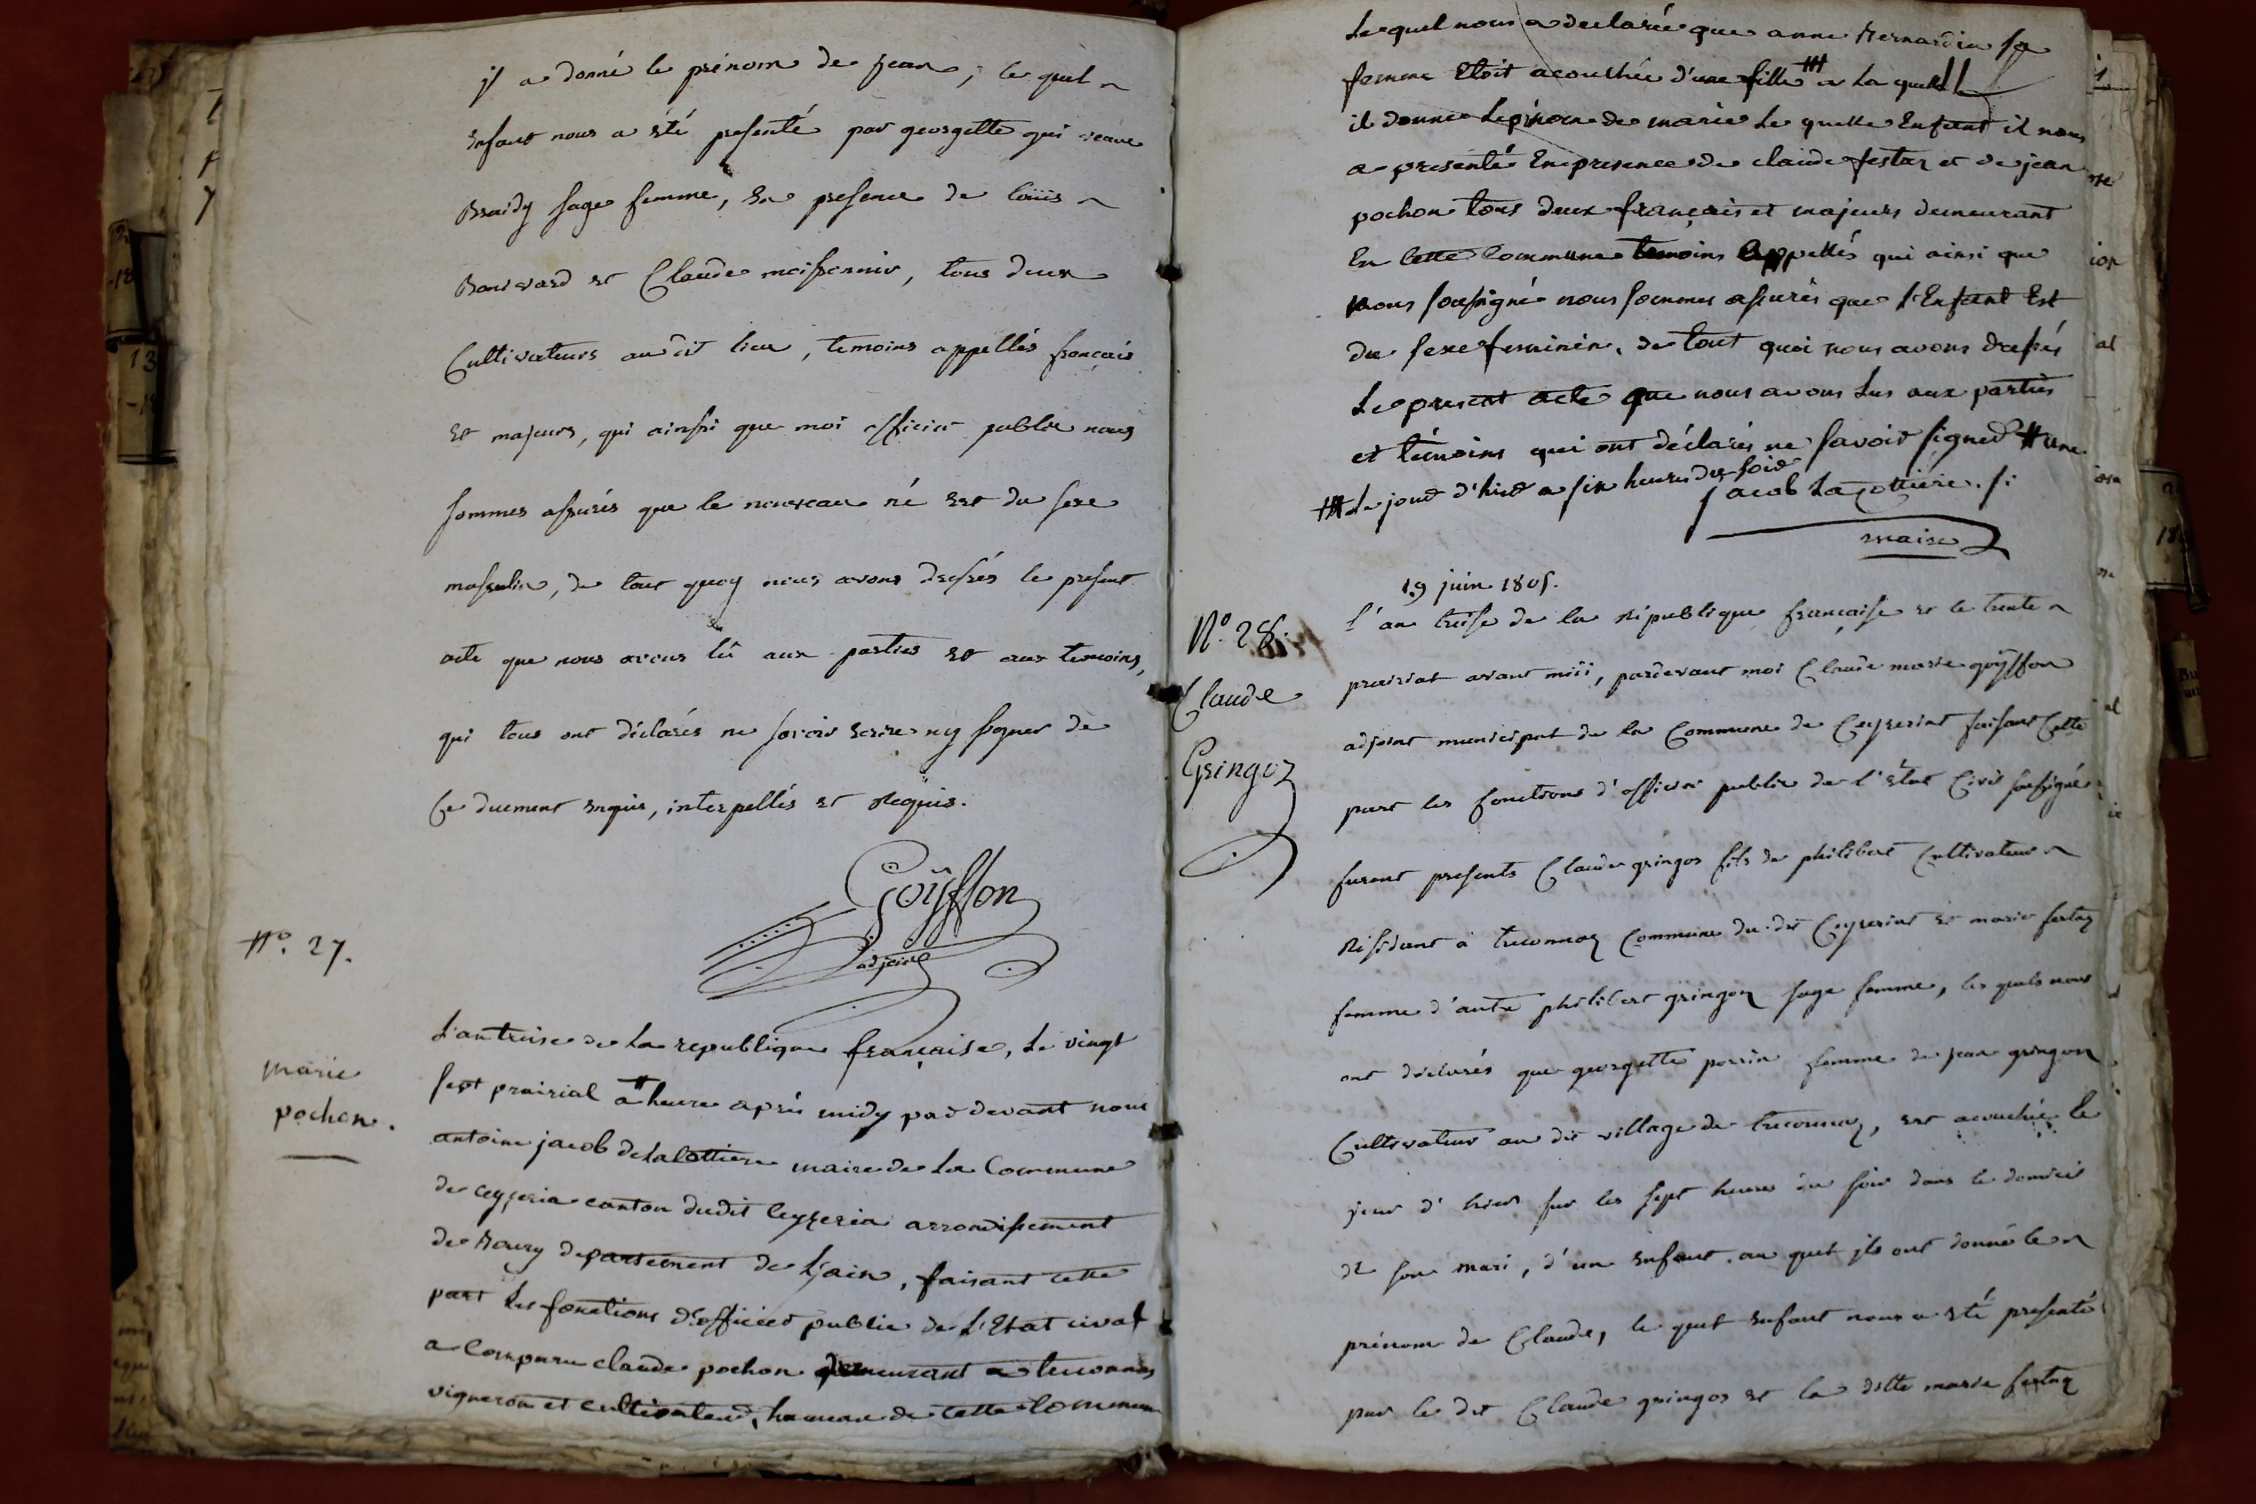 il a donné le prénom de jean, le quel
Enfant nous a été presenté par georgette qui veuve
Braidy sage femme, En presence de loüis
Bouvard et Claude moissonnier, tous deux
Cultivateurs au dit lieu, temoins appellés français
et majeurs, qui ainssi que moi officier public nous
sommes assurés que le nouveau né est du sexe
masculin, de tout quoy nous avons dressés le present
acte que nous avons lû aux parties et aux temoins,
qui tous ont déclarés ne savoir ecrire ny signer de
Ce duement enquis, interpellés et Requis.
Goÿffon
adjoint
N.° 27.
marie
pochon.
L'an treise de la republique française, le vingt
sept prairial a # heure après midy par devant nous
antoine jacob delalottiere maire de la Commune
de ceyzeria canton dudit Ceyzeria arrondissement
de Bourg departement de L'ain, faisant cette
part les fonctions d'officier public de L'Etat civil
a Comparu claude pochon demeurant a tecomnas
vigneron et cultivateur, hameau de cette Commune
Le quel nous a declarée que anne Bernardin sa
femme Etoit acouchée d'une fille ## a la quelle
il donne le prénom de marie le quelle Enfant il nous
a presenté En presence de claude festaz et de jean
pochon tous deux français et majeurs demeurant
En Cette Commune temoins appellés qui ainsi que
nous soussigné nous sommes assurés que l'Enfant Est
du sexe feminin. de tout quoi nous avons dressés
Le present acte que nous avons Lus aux parties
et témoins qui ont déclarés ne savoir signer # une
## Le jour d'hier a six heures du soir
jacob Lacottiére. f:
maire
19 juin 1805.
N.° 28.
Claude
Gringoz
L'an treise de la République française et le trente
prairial avant midi, pardevant moi Claude marie goÿffon
adjoint municipal de la Commune de Ceyseriat faisant Cette
part les fonctions d'officier public de l'état Civil soussigné
furent presents Claude gringoz fils de philibert Cultivateur
Résidant à tecomnaz Commune du dit Ceyseriat et marie festaz
femme d'autre philibert gringoz sage femme, les quels nous
ont déclarés que georgette perrin femme de jean gringoz
Cultivateur au dit village de tecomnaz, est acouchée le
jour d'hier sur les sept heures du soir dans le domicil
de son mari, d'un enfant. au quel ils ont donné le
prénom de Claude, le quel enfant nous a été presenté
par le dit Claude gringoz et la ditte marie festaz